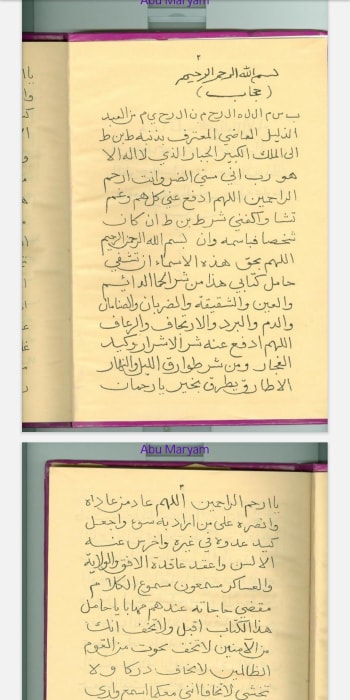 Abu Maryam
٢
بسم الله الرحمن الرحيم
( حجاب )
ب س م ا ل ل ه ا ل ر ح م ن ا ل ر ح ي م من العبد
الذليل العاصي المعترف بذنبه ط بن ط
الى الملك الكبير الجبار الذي لا اله الا
هو رب اني مسني الضر وانت ارحم
الراحمين اللهم ادفع عني كل هم وغم
تشا واكفني شر ط بن ط ان كان
شخصا فباسمه وان بسم الله الرحمن الرحيم
اللهم بحق هذه الاسماء ان تشفي
حامل كتابي هذا من شر الحا الدائم
والعين والشقيقة والضربان
والدم والبرد والارتجاف والرعاف
اللهم ادفع عنه شر الاشرار وكيد
الفجار ومن شر طوارق الليل والنهار
الا طارق يطرق بخير يا رحمان
Abu Maryam
٣
يا ارحم الراحمين اللهم عاد من عاداه
وانصره على من اراد به سوء واجعل
كيد عدوه في غيره واخرس عنه
الالسن واعقد عاقدة الافق والولاية
والعساكر مسمعون مسموع الكلام
مقضي حاجاته عندهم مهابا يا حامل
هذا الكتاب اقبل ولا تخف انك
من الآمنين لا تخف نجوت من القوم
الظالمين لا تخاف دركا ولا
تخشى لا تخافا انني معكما اسمع وارى